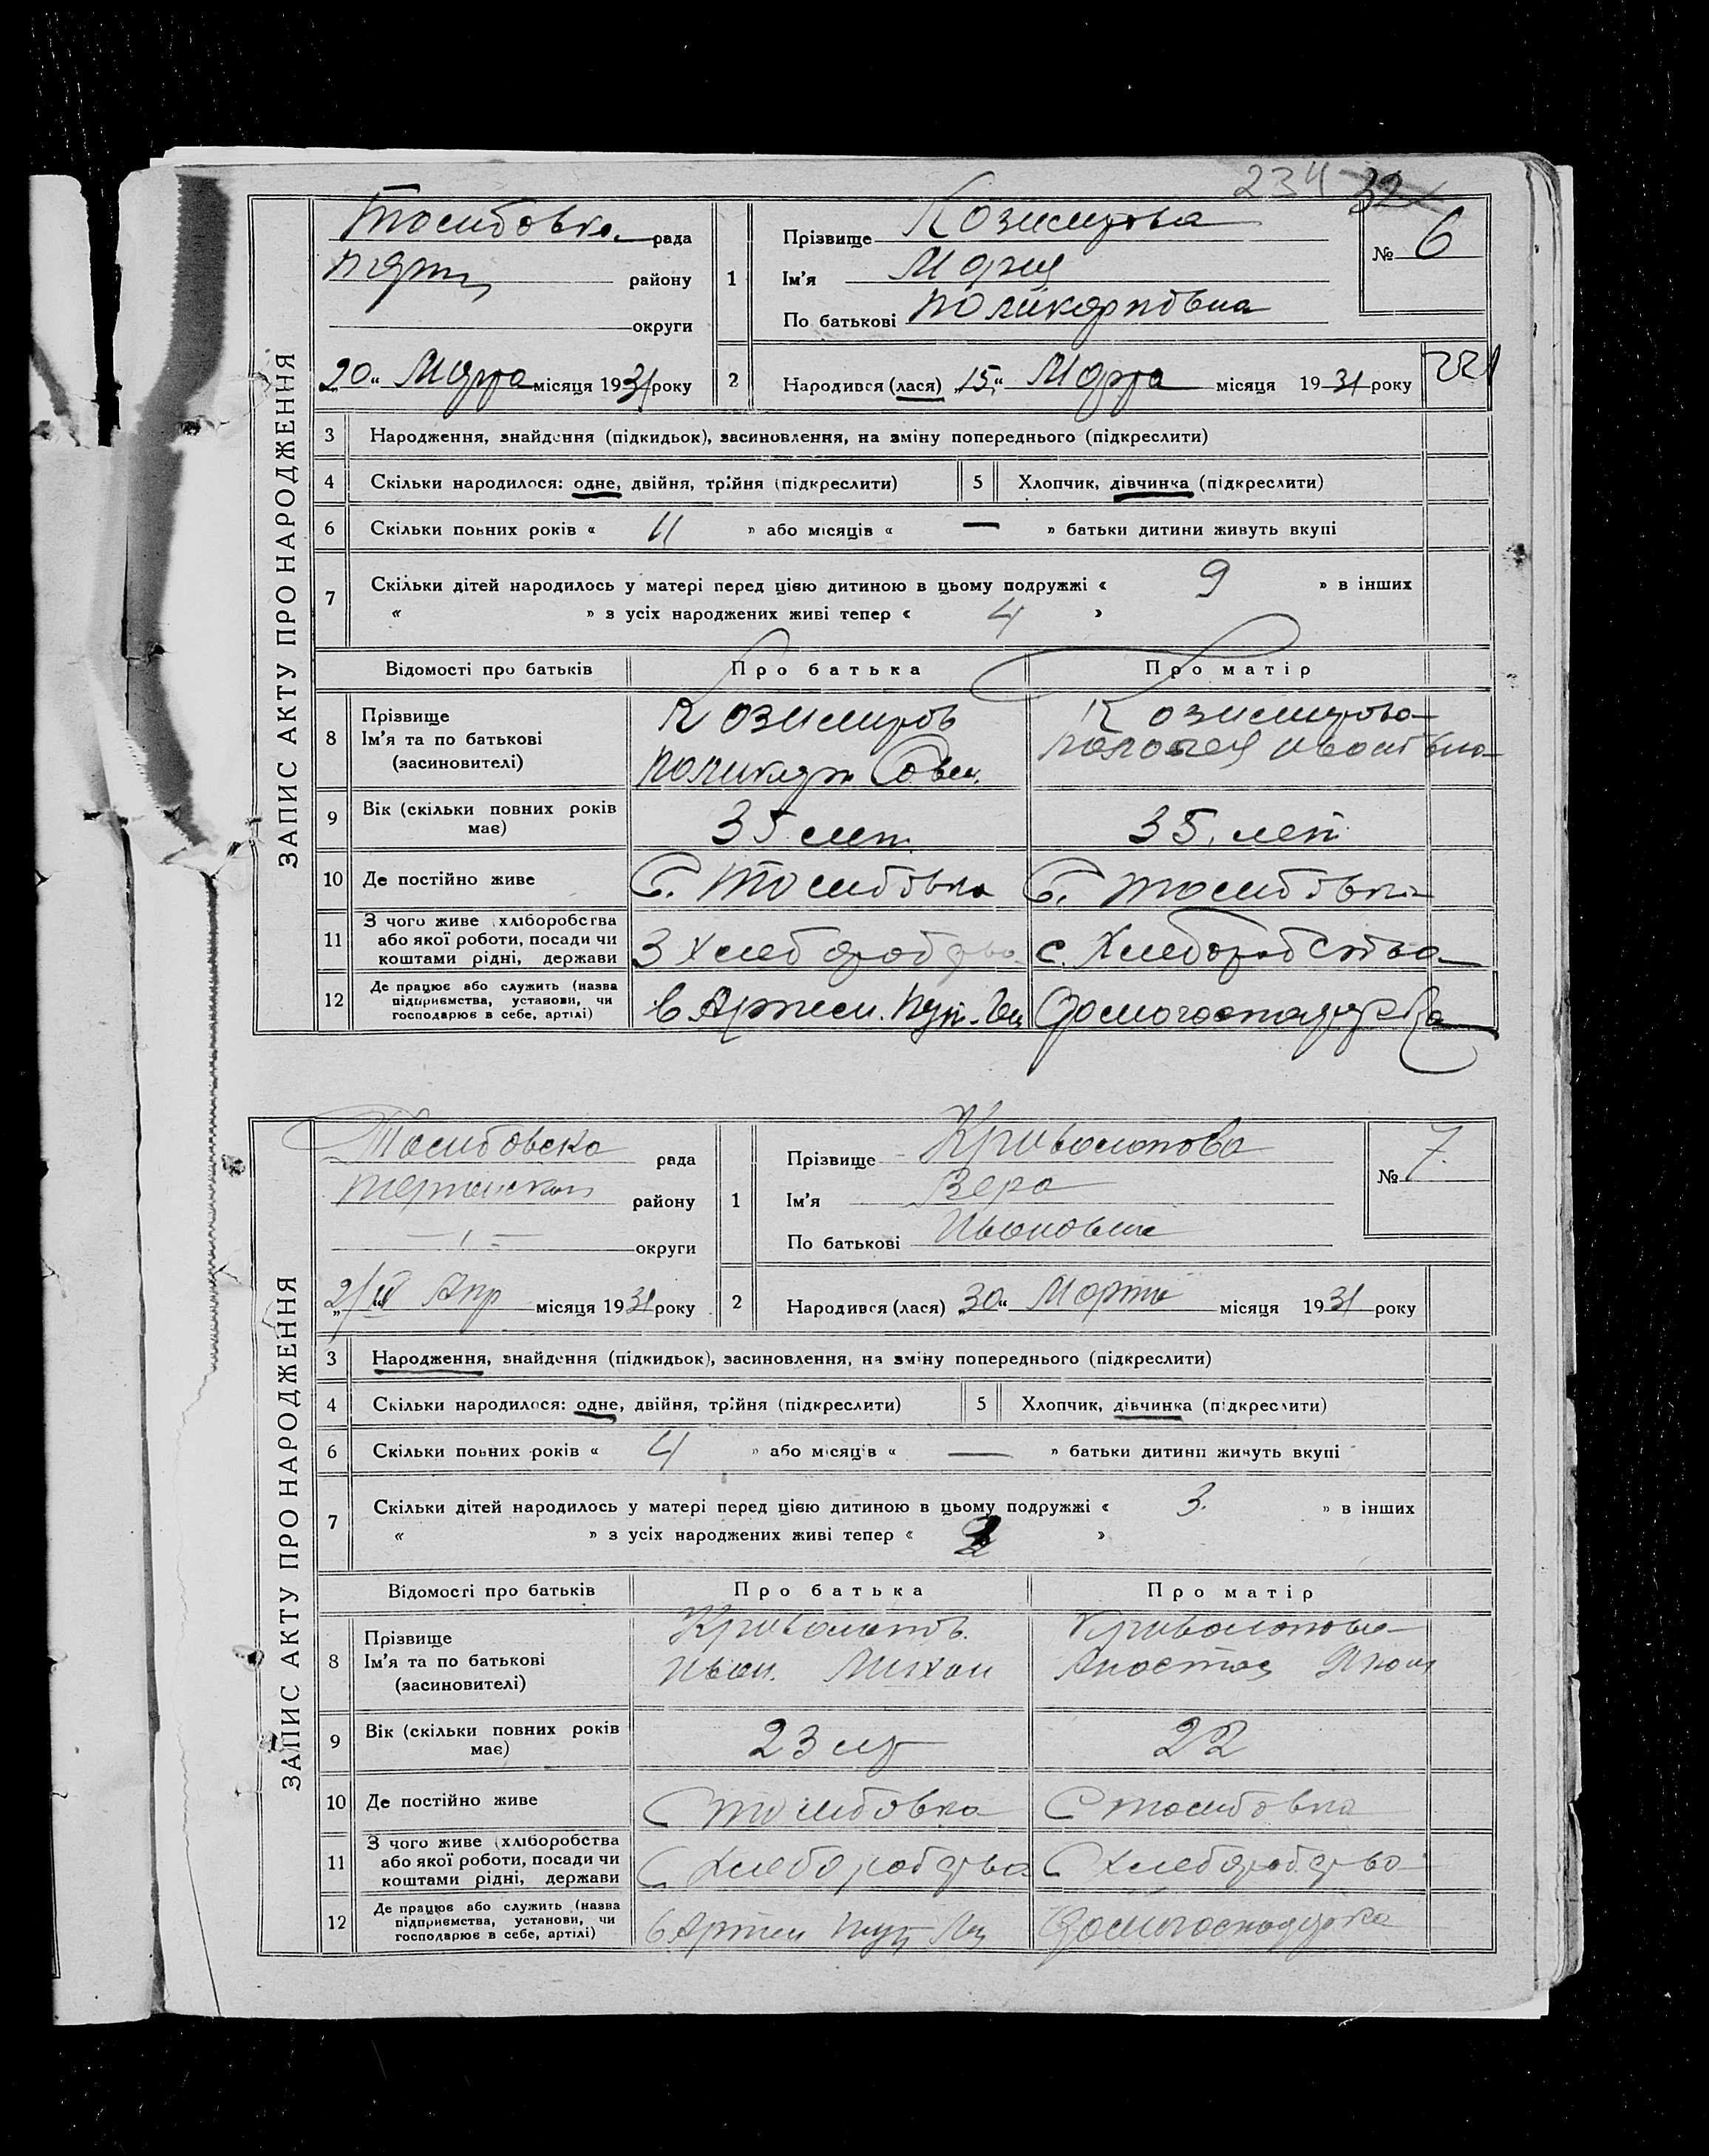 234 32
ЗАПИС АКТУ ПРО НАРОДЖЕННЯ
рада
району
округи
„20“ Марта місяця 1931 року
1
Прізвище Козимирова
Ім'я Мария
По батькові Поликарповна
№ 6
2 Народився (лася) „15“ Марта місяця 1931 року
221
3 Народження, знайдення (підкидьок), засиновлення, на зміну попереднього (підкреслити)
4 Скільки народилося: одне, двійня, трійня (підкреслити) 5 Хлопчик, дівчинка (підкреслити)
6 Скільки повних років « 11 » або місяців « — » батьки дитини живуть вкупі
7 Скільки дітей народилось у матері перед цією дитиною в цьому подружжі « 9 » в інших
« » з усіх народжених живі тепер « 4 »
Відомості про батьків Про батька Про матір
8 Прізвище
Ім'я та по батькові
(засиновителі)
Козимиров
Поликарп
Козимирова
9 Вік (скільки повних років
має)
35 лет.
35. лет
10 Де постійно живе
11 З чого живе (хліборобства
або якої роботи, посади чи
коштами рідні, держави
З Хлебороб
с. Хлеборобства
12 Де працює або служить (назва
підприємства, установи, чи
господарює в себе, артілі)
в Артел.
Домогосподарка
ЗАПИС АКТУ ПРО НАРОДЖЕННЯ
рада
району
округи
Апр місяця 1931 року
1
Прізвище
Ім'я Вера
По батькові Ивановна
№ 7.
2 Народився (лася) „30“ Марта місяця 1931 року
3 Народження, знайдення (підкидьок), засиновлення, на зміну попереднього (підкреслити)
4 Скільки народилося: одне, двійня, трійня (підкреслити) 5 Хлопчик, дівчинка (підкреслити)
6 Скільки повних років « 4 » або місяців « — » батьки дитини живуть вкупі
7 Скільки дітей народилось у матері перед цією дитиною в цьому подружжі « 3. » в інших
« » з усіх народжених живі тепер « 2 »
Відомості про батьків Про батька Про матір
8 Прізвище
Ім'я та по батькові
(засиновителі)
Иван.
9 Вік (скільки повних років
має)
23
22
10 Де постійно живе
11 З чого живе (хліборобства
або якої роботи, посади чи
коштами рідні, держави
С Хлеборобства
С Хлеборобства
12 Де працює або служить (назва
підприємства, установи, чи
господарює в себе, артілі)
в Артели
Домогосподарка